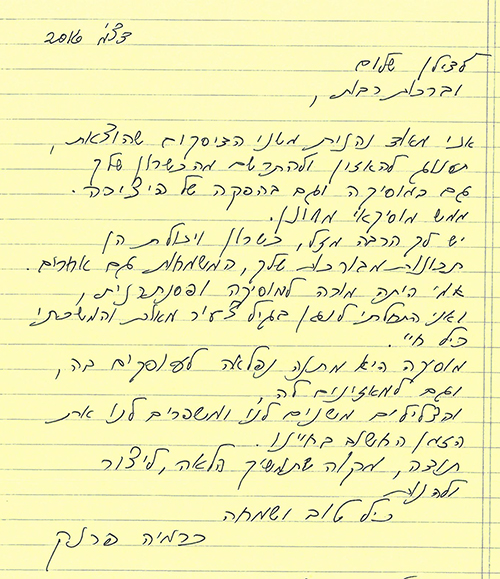 דצמ' 2016
לעילן שלום
וברכות רבות,
אני מאוד נהנית משני הדיסקים שהוצאת,
תענוג להאזין ולהתרשם מהכשרון שלך
גם במוסיקה וגם בהפקה של היצירה.
ממש מוסיקאי מחונן.
יש לך הרבה מזל, כשרון ויכולת הן
תכונות מבורכות שלך, המשמחות גם אחרים.
אמי היתה מורה למוסיקה ופסנתרנית,
ואני התחלתי לנגן בגיל צעיר מאות והמשכתי
כל חיי.
מוסיקה היא מתנה נפלאה לעוסקים בה,
וגם למאזינים לה,
והצלילים משנים לנו ומשפרים לנו את
הזמן החשוב בחיינו.
תודה, מקוה שתמשיך הלאה, ליצור
ולהנות
כל טוב ושמחה
כרמיה פרנק